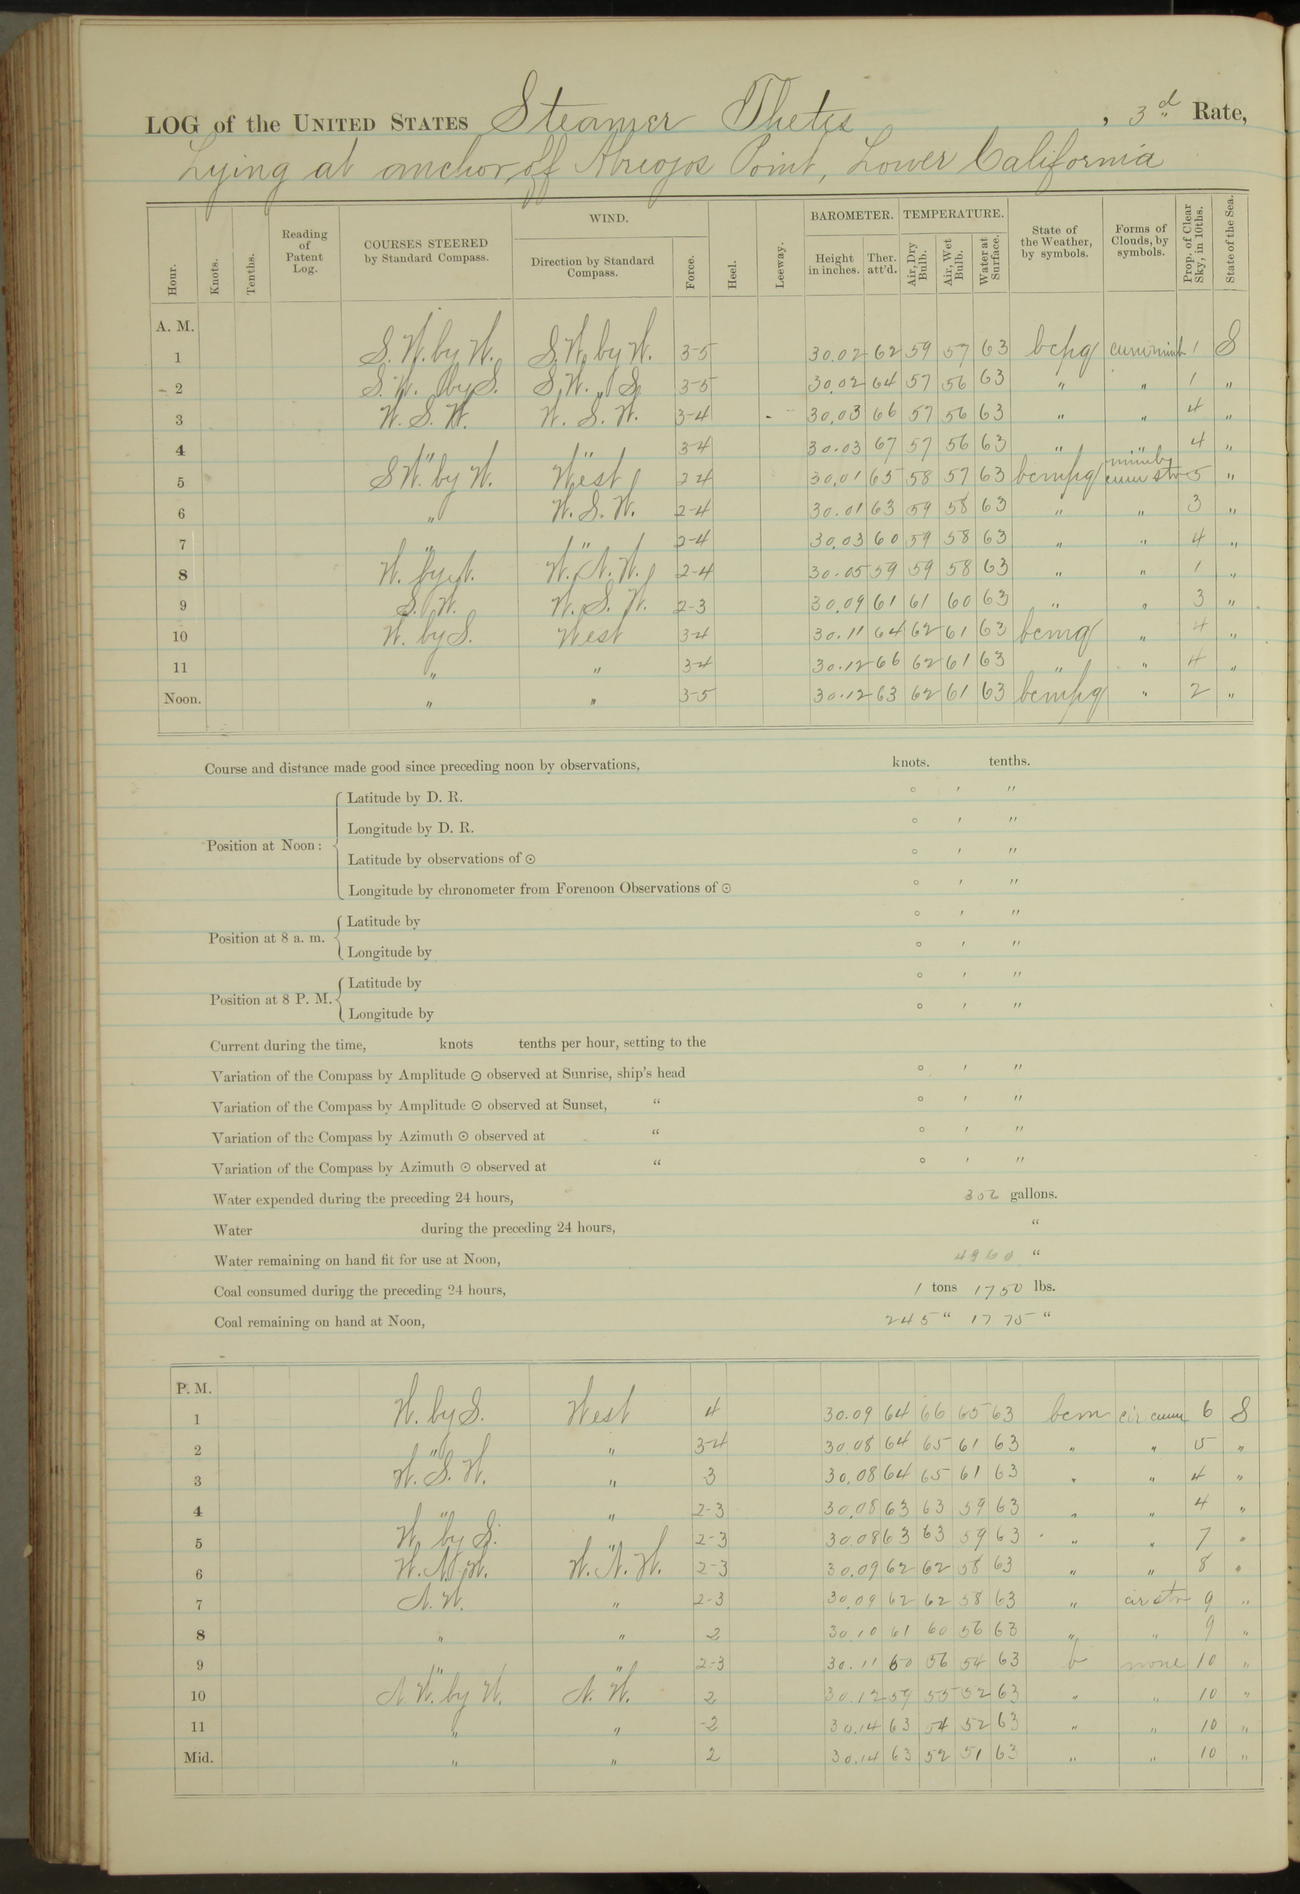 LOG of the UNITED STATES Steamer Thetis, 3rd Rate,
Lying at anchor off Abreojos Point, Lower California
Hour. Knots. Tenths. Reading of Patent Log. COURSES STEERED by Standard Compass. WIND. Direction by Standard Compass. Force. Heel. Leeway. BAROMETER. Height in inches. Ther. att'd. TEMPERATURE. Air, Dry Bulb. Air, Wet Bulb. Water at Surface. State of the Weather, by symbols. Forms of Clouds, by symbols. Prop. of Clear Sky, in 10ths. State of the Sea.
A. M.
1 S.W. by W. S.W. by W. 3-5 30.02 62 59 57 63 bcpq 1 S
2 S.W. by S. S.W. " S. 3-5 30.02 64 57 56 63 " " 1 "
3 W.S.W. W.S.W. 3-4 30.03 66 57 56 63 " " 4 "
4 " " 3-4 30.03 67 57 56 63 " " 4 "
5 S.W. by W. West 2-4 30.01 65 58 57 63 bcmpq cum str 5 "
6 " W.S.W. 2-4 30.01 63 59 58 63 " " 3 "
7 " " 2-4 30.03 60 59 58 63 " " 4 "
8 W. by N. W.N.W. 2-4 30.05 59 59 58 63 " " 1 "
9 S.W. W.S.W. 2-3 30.09 61 61 60 63 " " 3 "
10 W. by S. West 3-4 30.11 64 62 61 63 bcmq " 4 "
11 " " 3-4 30.12 66 62 61 63 " " 4 "
Noon. " " 3-5 30.12 63 62 61 63 bcmpq " 2 "
Course and distance made good since preceding noon by observations, knots. tenths.
Position at Noon: Latitude by D. R. ° ′ ″
Longitude by D. R. ° ′ ″
Latitude by observations of ⊙ ° ′ ″
Longitude by chronometer from Forenoon Observations of ⊙ ° ′ ″
Position at 8 a. m. Latitude by ° ′ ″
Longitude by ° ′ ″
Position at 8 P. M. Latitude by ° ′ ″
Longitude by ° ′ ″
Current during the time, knots tenths per hour, setting to the
Variation of the Compass by Amplitude ⊙ observed at Sunrise, ship's head ° ′ ″
Variation of the Compass by Amplitude ⊙ observed at Sunset, " ° ′ ″
Variation of the Compass by Azimuth ⊙ observed at " ° ′ ″
Variation of the Compass by Azimuth ⊙ observed at " ° ′ ″
Water expended during the preceding 24 hours, 302 gallons.
Water during the preceding 24 hours, "
Water remaining on hand fit for use at Noon, 4960 "
Coal consumed during the preceding 24 hours, 1 tons 1750 lbs.
Coal remaining on hand at Noon, 245 " 1775 "
P. M.
1 W. by S. West 4 30.09 64 66 65 63 bcm cir cum 6 S
2 " " 3-4 30.08 64 65 61 63 " " 5 "
3 W.S.W. " 3 30.08 64 65 61 63 " " 4 "
4 " " 2-3 30.08 63 63 59 63 " " 4 "
5 W. by S. " 2-3 30.08 63 63 59 63 " " 7 "
6 W.N.W. W.N.W. 2-3 30.09 62 62 58 63 " " 8 "
7 N.W. " 2-3 30.09 62 62 58 63 " cir str 9 "
8 " " 2 30.10 61 60 56 63 " " 9 "
9 " " 2-3 30.11 60 56 54 63 b none 10 "
10 N.W. by W. N.W. 2 30.12 59 55 52 63 " " 10 "
11 " " 2 30.14 63 54 52 63 " " 10 "
Mid. " " 2 30.14 63 52 51 63 " " 10 "